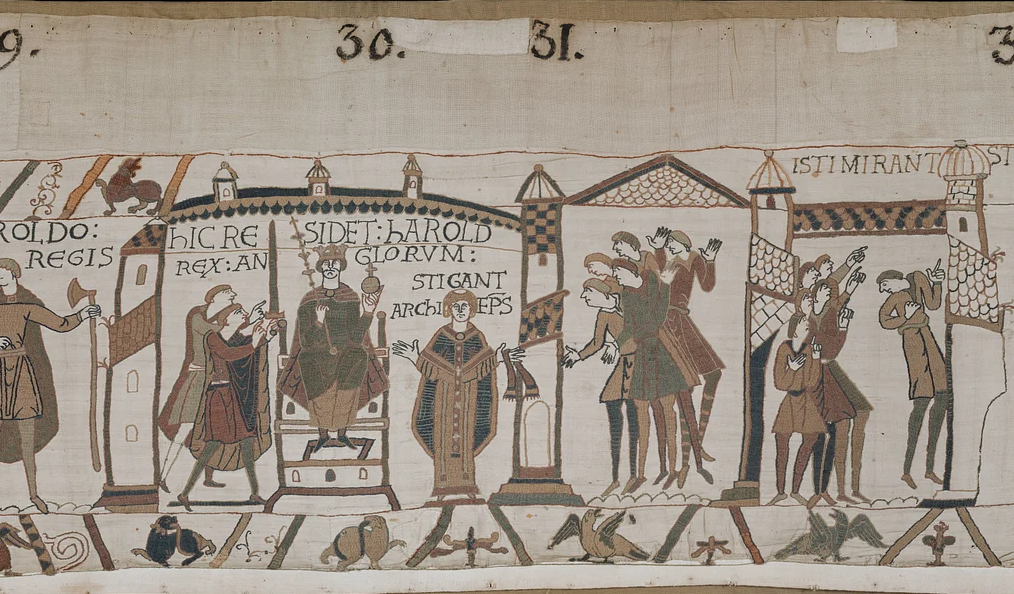 9.
30.
31.
3
ROLDO:
REGIS
HIC RE SIDET: HAROLD
REX: AN GLORVM:
STIGANT
ARCHI EPS
ISTI MIRANT ST